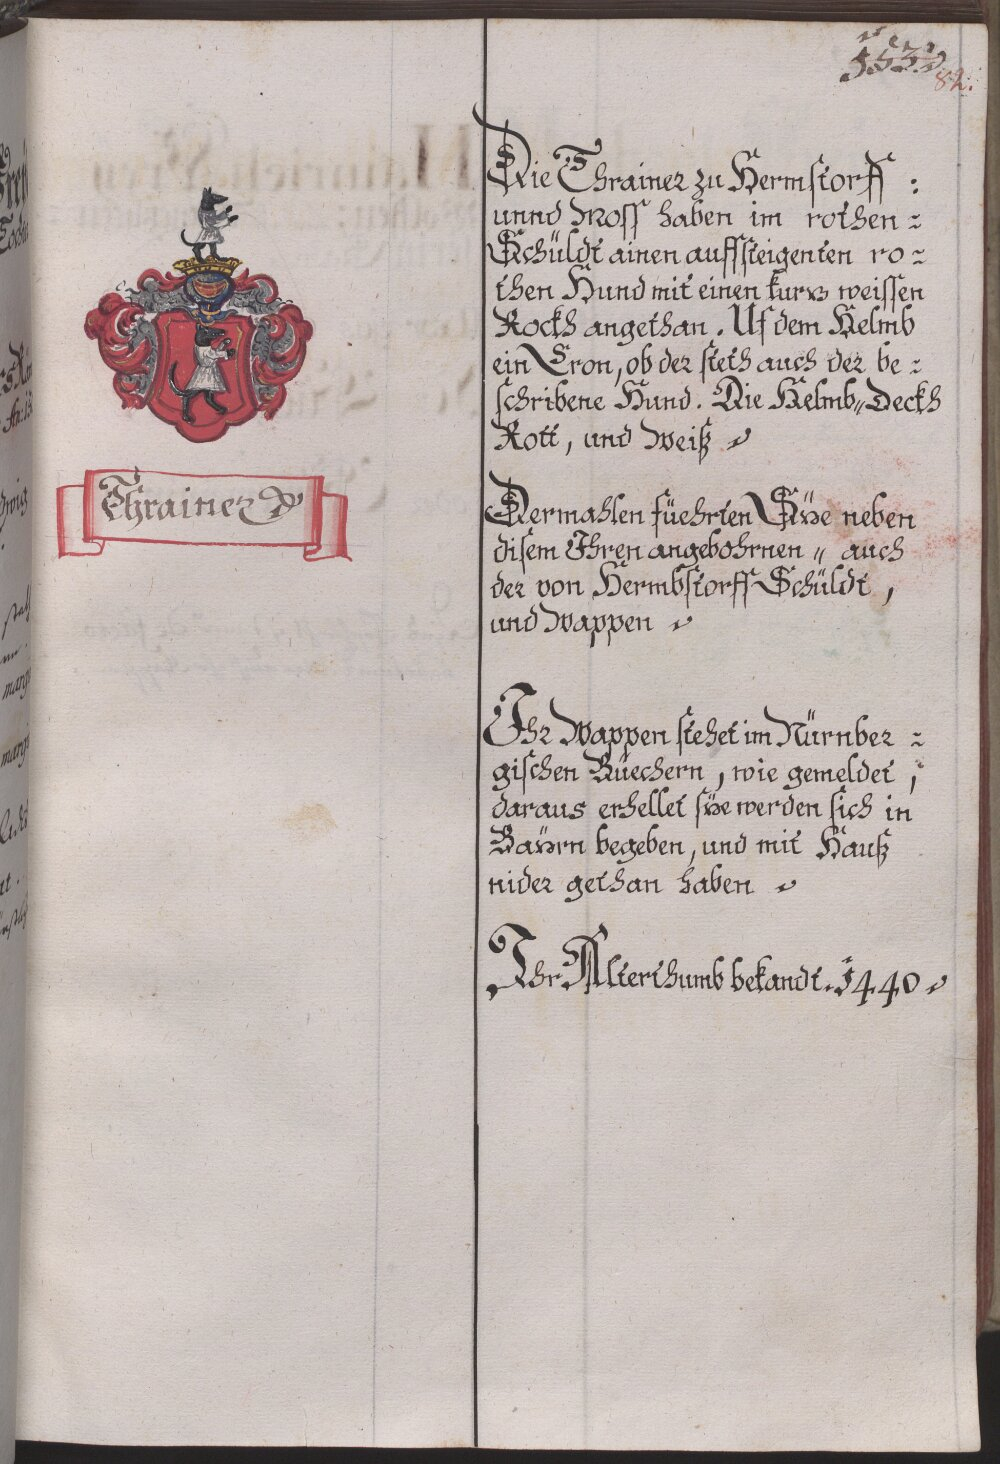 553.
82.
Thrainer
Die Thrainer zu Hermstorff :
unnd Moss haben im rothen =
Schüldt ainen auffsteigenten ro =
then Hund mit einen kurz weissen
Rockh angethan. Uf dem Helmb
ein Cron, ob der steth auch der be =
schribene Hund. Die Helmb„ Deckh
Rott, und Weiß
Dermahlen füehrten Sÿe neben
disem Ihren angebohrnen „ auch
der von Hermbstorff Schüldt,
und Wappen
Ihr Wappen stehet im Nürnber =
gischen Büechern, wie gemeldet,
daraus erhellet sÿe werden sich in
Baÿrn begeben, und mit Hauß
nider gethan haben
Ihr Alterthumb bekandt. 1440